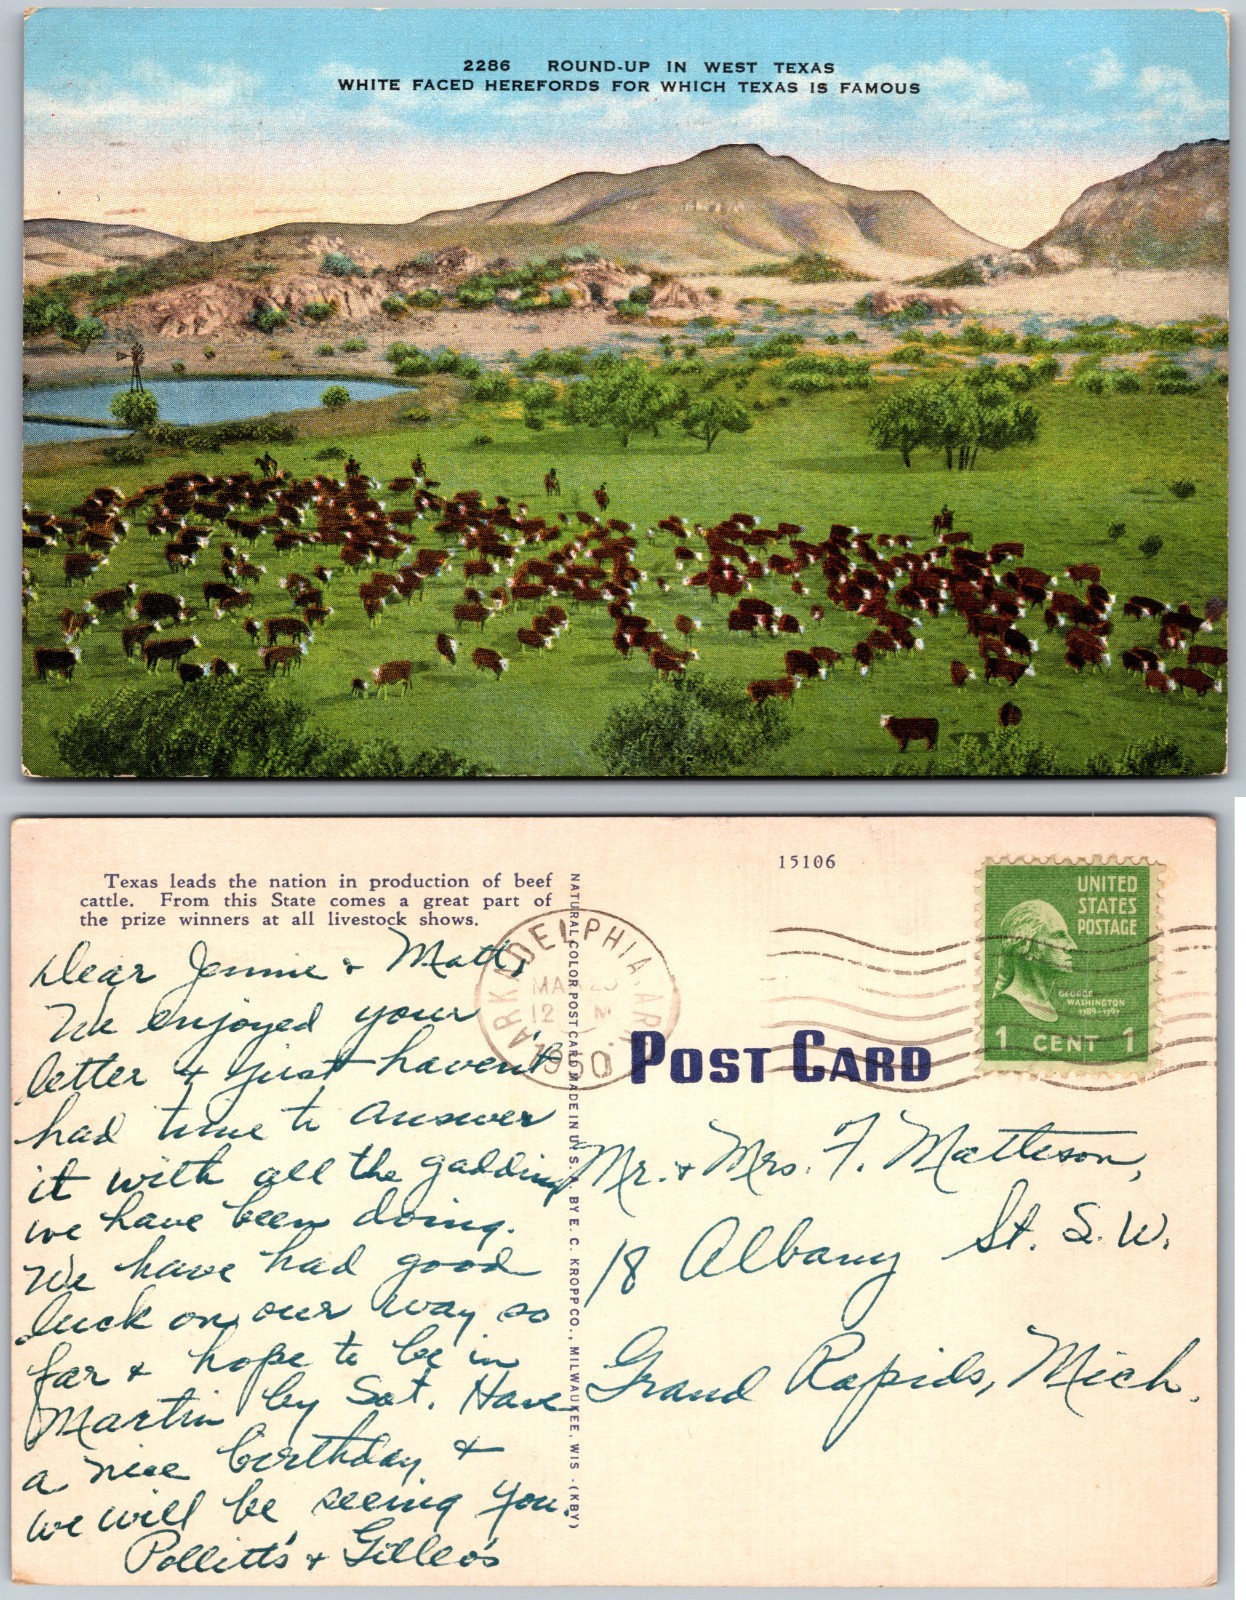 2286 ROUND-UP IN WEST TEXAS
WHITE FACED HEREFORDS FOR WHICH TEXAS IS FAMOUS
Texas leads the nation in production of beef
cattle. From this State comes a great part of
the prize winners at all livestock shows.
15106
Dear Jennie + Matt,
We enjoyed your
letter + just haven't
had time to answer
it with all the gadding
we have been doing.
We have had good
luck on our way so
far + hope to be in
Martin by Sat. Have
a nice birthday +
we will be seeing you.
Pollitt's + Gilleo's
NATURAL COLOR POST CARD MADE IN U. S. A. BY E. C. KROPP CO., MILWAUKEE, WIS.-(KBY)
ARKADELPHIA, ARK.
12 M
1950
POST CARD
UNITED
STATES
POSTAGE
GEORGE
WASHINGTON
1789-1797
1 CENT 1
Mr. + Mrs. F. Matteson,
18 Albany St. S.W.
Grand Rapids, Mich.